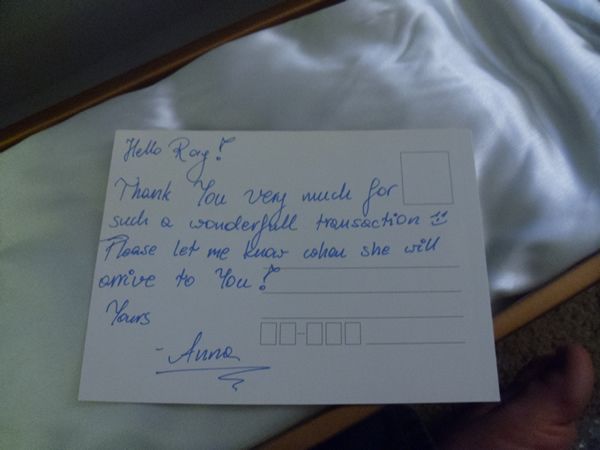 Hello Ray!
Thank You very much for
such a wonderfull transaction
Please let me know when she will
arrive to You!
Yours
- Anna